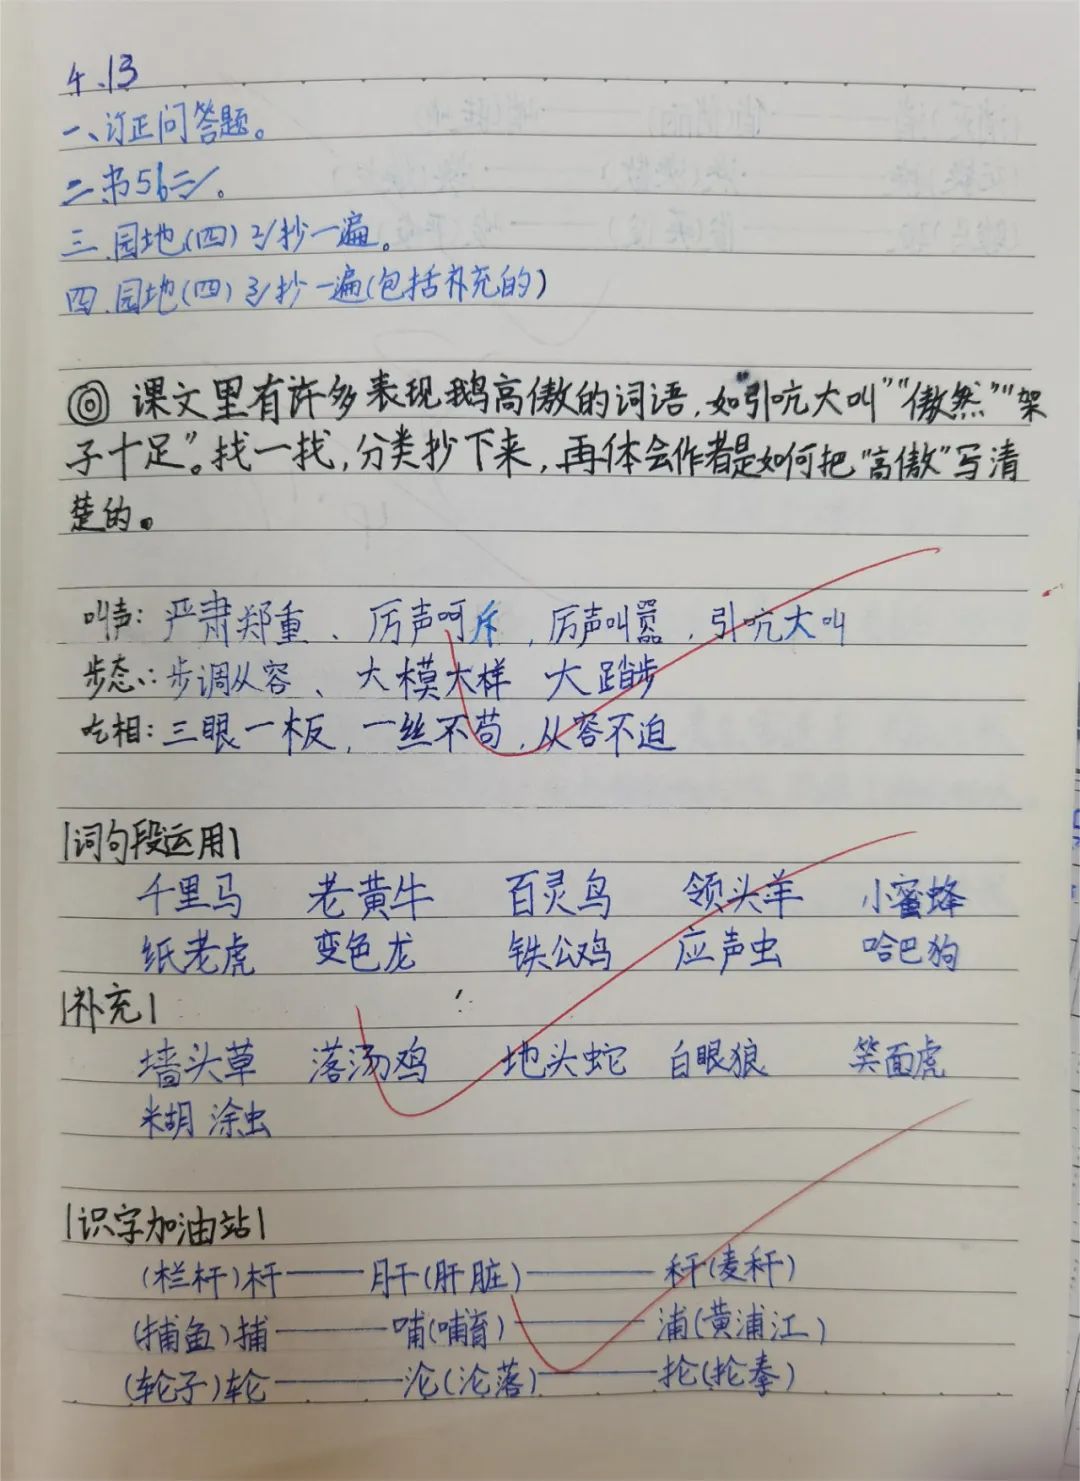 4.13
一、订正问答题。
二.书56三/。
三.园地(四)2/抄一遍。
四.园地(四)3/抄一遍(包括补充的)
◎ 课文里有许多表现鹅高傲的词语,如"引吭大叫""傲然""架
子十足"。找一找,分类抄下来,再体会作者是如何把"高傲"写清
楚的。
叫声:严肃郑重、厉声呵斥,厉声叫嚣,引吭大叫
步态:步调从容、大模大样 大踏步
吃相:三眼一板,一丝不苟,从容不迫
|词句段运用|
千里马 老黄牛 百灵鸟 领头羊 小蜜蜂
纸老虎 变色龙 铁公鸡 应声虫 哈巴狗
|补充|
墙头草 落汤鸡 地头蛇 白眼狼 笑面虎
糊涂虫
|识字加油站|
(栏杆)杆——肝(肝脏)——秆(麦秆)
(捕鱼)捕——哺(哺育)——浦(黄浦江)
(轮子)轮——沦(沦落)——抡(抡拳)